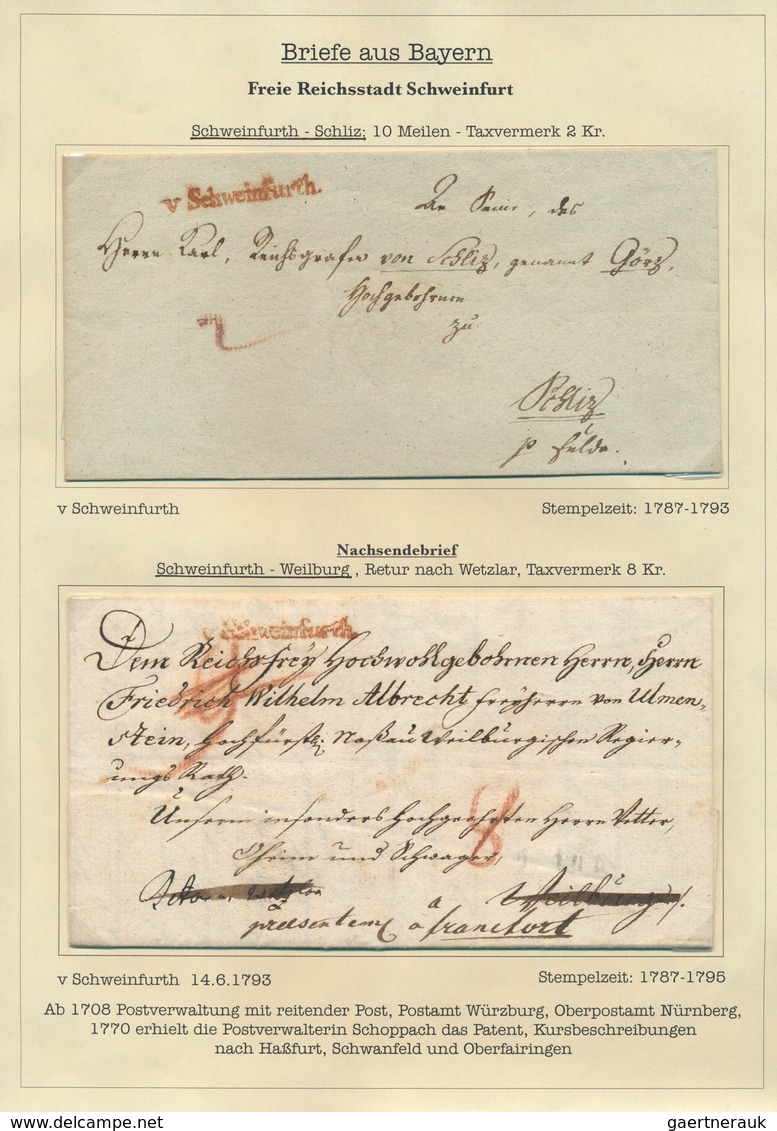 Briefe aus Bayern
Freie Reichsstadt Schweinfurt
Schweinfurth - Schliz; 10 Meilen - Taxvermerk 2 Kr.
v Schweinfurth.
An Seine, des
Herrn Karl, Reichsgrafen von Schliz, genannt Görz,
Hochgebohrnen
zu
2
Schliz
p Fulda.
v Schweinfurth
Stempelzeit: 1787-1793
Nachsendebrief
Schweinfurth - Weilburg , Retur nach Wetzlar, Taxvermerk 8 Kr.
v Schweinfurth.
Dem Reichsfrey Hochwohlgebohrnen Herrn, Herrn
Friedrich Wilhelm Albrecht Freyherrn von Ulmen-
stein, Hochfürstl. Naßau Weilburgischen Regier-
ungs Rath.
Unserm insonders Hochgeehrten Herrn Vetter,
8
Oheim und Schwager,
a Weilburg
presentem a francfort
v Schweinfurth 14.6.1793
Stempelzeit: 1787-1795
Ab 1708 Postverwaltung mit reitender Post, Postamt Würzburg, Oberpostamt Nürnberg,
1770 erhielt die Postverwalterin Schoppach das Patent, Kursbeschreibungen
nach Haßfurt, Schwanfeld und Oberfairingen
delcampe.net
gaertnerauk